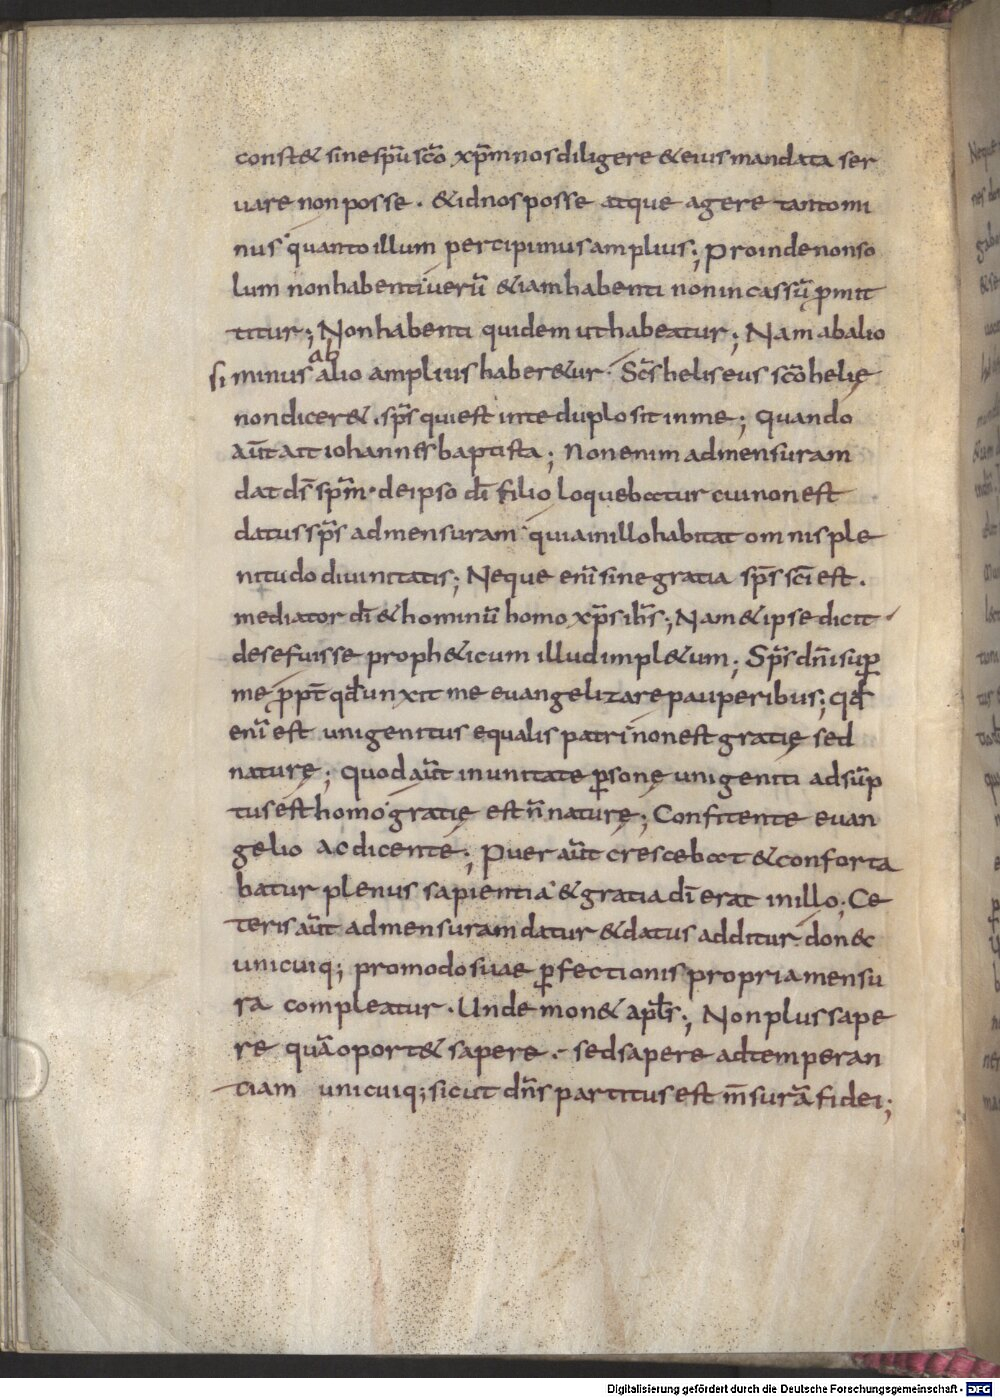 const& sinespũ scõ xp̃m nos diligere & eius mandata ser
uare non posse . & id nos posse atque agere tanto mi
nus quanto illum percipimus amplius ; Proinde non so
lum non habenti uerũ & iam habenti non incassũ p̲mit
titur ; Non habenti quidem ut habeatur ; Nam ab alio
ab
si minus alio amplius haber&ur . Sc̃s heliseus scõ helię
non dicer& . sp̃s qui est in te duplo sit in me ; Quando
aũt ait iohannes baptista ; Non enim ad mensuram
dat dš sp̃m . de ipso dĩ filio loquebatur cui non est
datus sp̃s ad mensuram quia in illo habitat omnis ple
nitudo diuinitatis ; Neque enĩ sine gratia sp̃s sc̃i est .
mediator dĩ & hominũ homo xp̃s ih̃s ; Nam & ipse dicit
de se fuisse proph&icum illud impl&um ; Sp̃s dñi sup̲
me p̲pt̃ qđ unxit me euangelizare pauperibus ; qđ
enĩ est unigenitus equalis patri non est gratię sed
naturę ; quod aũt in unitate p̲sonę unigeniti adsũp
tus est homo gratię est ñ naturę ; Confitente euan
gelio ac dicente ; Puer aũt crescebat & conforta
batur plenus sapientia & gratia dĩ erat in illo ; Ce
teris aũt ad mensuram datur & datus additur donec
unicuiq; pro modo suae p̲fectionis propria mensu
ra compleatur . Unde mon& apl̃s ; Non plus sape
re quã oport& sapere . sed sapere ad temperan
tiam unicuiq; sicut dñs partitus est m̃surã fidei ;
Digitalisierung gefördert durch die Deutsche Forschungsgemeinschaft - DFG